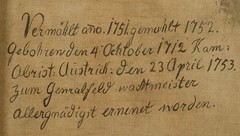 Vermählt año. 1751 gemahlt 1752.
Gebohren den 4 October 1712 Kam:
Obrist: Austrich: den 23 April 1753.
zum Generalfeld wachtmeister
allergnädigst ernenet worden.